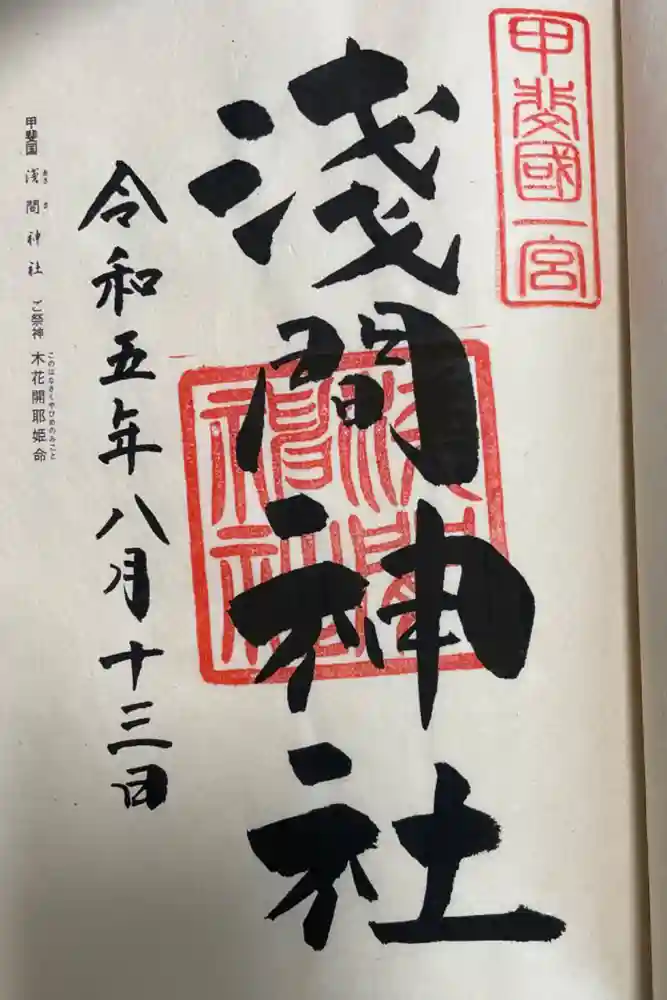 甲斐國一宮
浅間神社
浅間神社
令和五年八月十三日
甲斐国 浅間神社 ご祭神 木花開耶姫命
あさま
このはなさくやひめのみこと